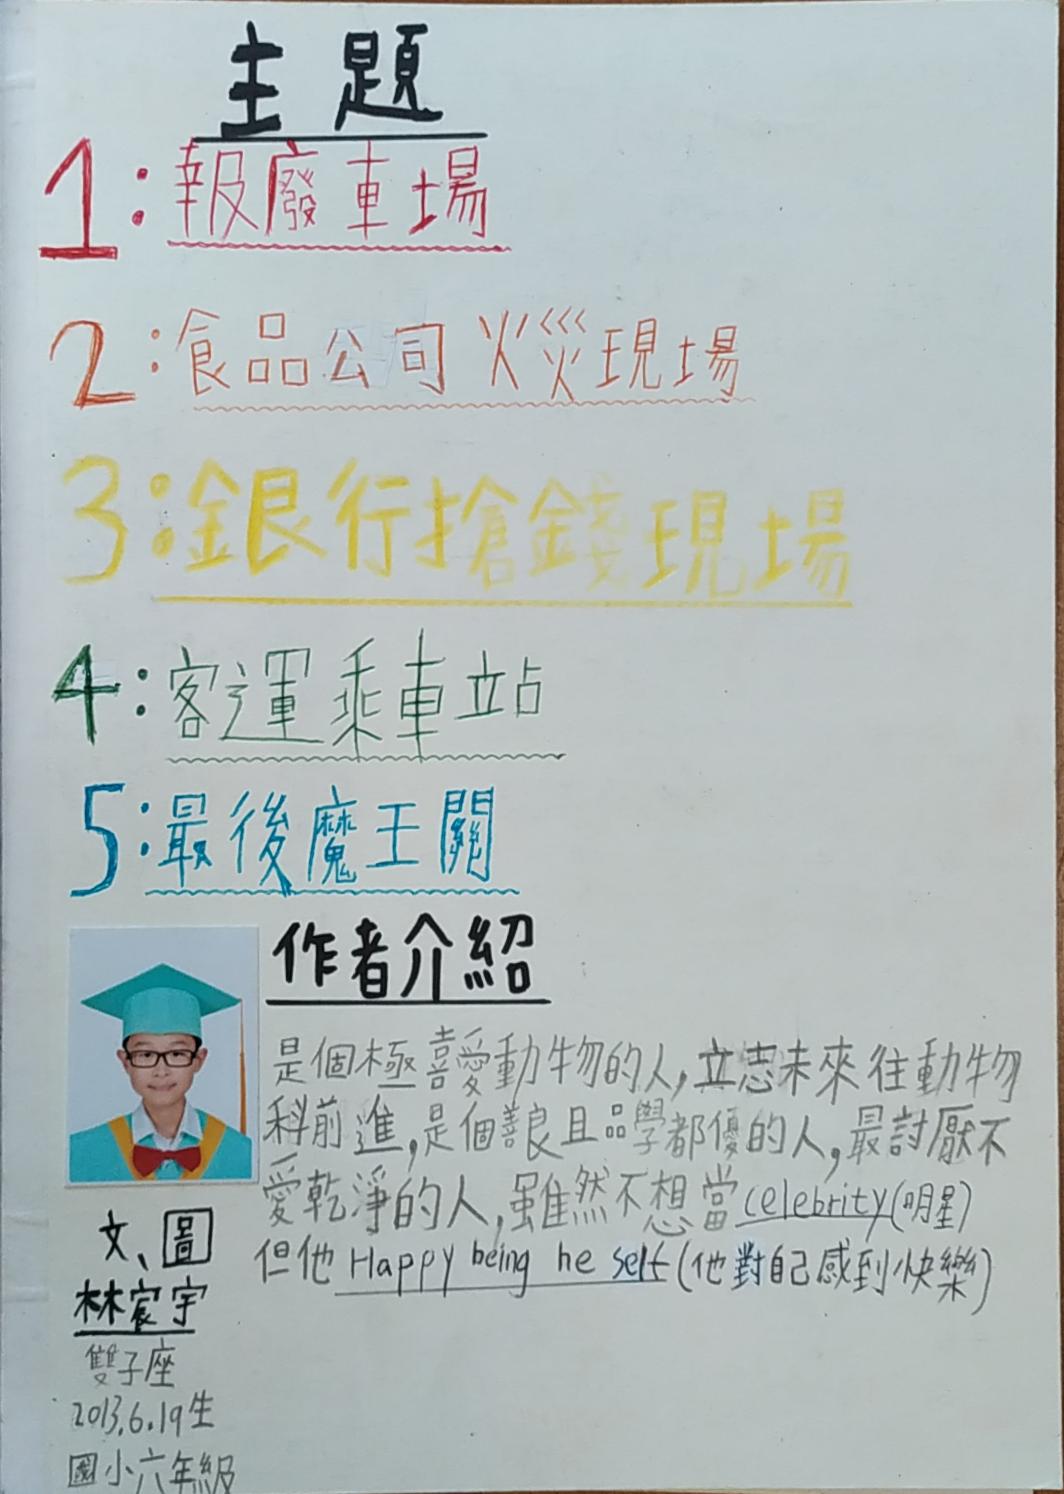 主題
1:報廢車場
2:食品公司火災現場
3:銀行搶錢現場
4:客運乘車站
5:最後魔王關
作者介紹
是個極喜愛動物的人,立志未來往動物
科前進,是個善良且品學都優的人,最討厭不
愛乾淨的人,雖然不想當celebrity(明星)
但他Happy being he self(他對自己感到快樂)
文、圖
林宸宇
雙子座
2013.6.19生
國小六年級